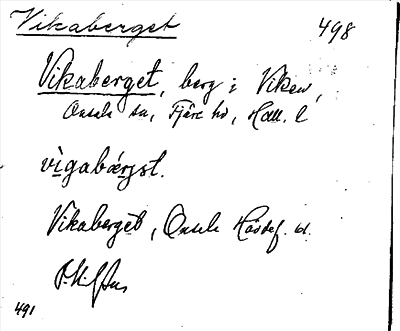 Vikaberget 498
Vikaberget, berg i Viken,
Onsala sn, Fjäre hd, Hall. l.
vìgabærjət.
Vikaberget, Onsala
491